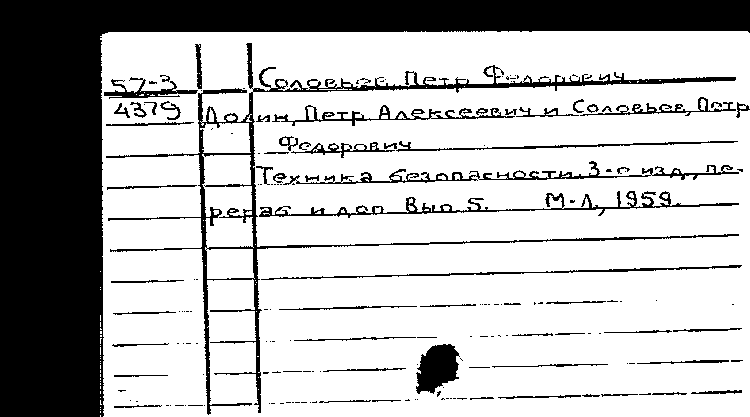 57-3 Соловьев, Петр Федорович
4379 Долин, Петр Алексеевич и Соловьев, Петр
Федорович
Техника безопасности. 3-е изд., пе-
рераб и доп Вып 5. М-Л, 1959.